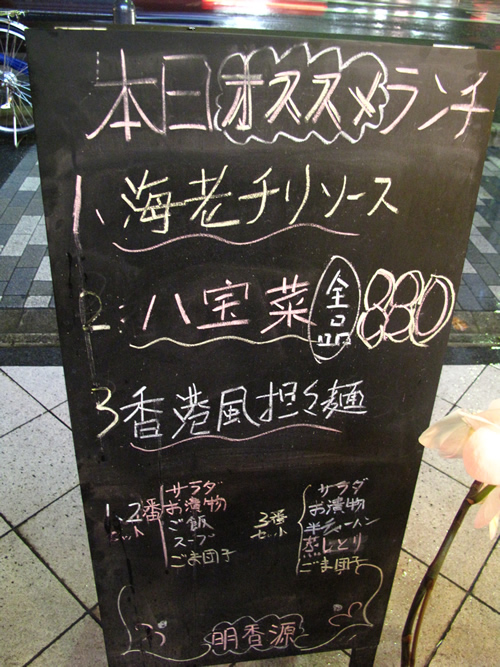 本日オススメランチ
1、海老チリソース
2、八宝菜 全品 880
3 香港風担々麺
1、2番セット
サラダ
お漬物
ご飯
スープ
ごま団子
3番セット
サラダ
お漬物
半チャーハン
蒸しとり
ごま団子
明香源